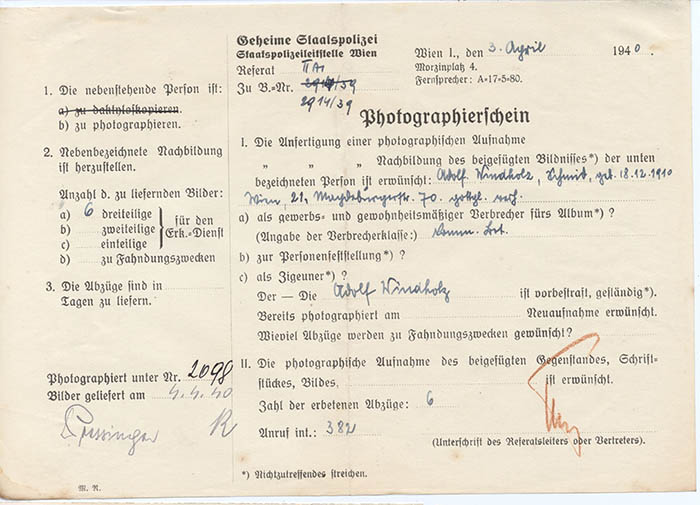 Geheime Staatspolizei
Staatspolizeileitstelle Wien
Referat II A1
Zu B.-Nr. 2914/39
2914/39
Wien I., den 3. April 1940.
Morzinplatz 4.
Fernsprecher: A=17=5=80.
1. Die nebenstehende Person ist:
a) zu daktyloskopieren.
b) zu photographieren.
2. Nebenbezeichnete Nachbildung
ist herzustellen.
Anzahl d. zu liefernden Bilder:
a) 6 dreiteilige
b) zweiteilige
c) einteilige
für den
Erk.=Dienst
d) zu Fahndungszwecken
3. Die Abzüge sind in
Tagen zu liefern.
Photographiert unter Nr. 2098
Bilder geliefert am 4.4.40
R
M. R.
Photographierschein
I. Die Anfertigung einer photographischen Aufnahme
„ „ „ Nachbildung des beigefügten Bildnisses*) der unten
bezeichneten Person ist erwünscht: Adolf Windholz, Schmied, geb. 18.12.1910
Wien, 21. Magdeburgerstr. 70. gottgl. verh.
a) als gewerbs= und gewohnheitsmäßiger Verbrecher fürs Album*) ?
(Angabe der Verbrecherklasse:) Komm. Bet.
b) zur Personenfeststellung*) ?
c) als Zigeuner*) ?
Der — Die Adolf Windholz ist vorbestraft, geständig*).
Bereits photographiert am Neuaufnahme erwünscht.
Wieviel Abzüge werden zu Fahndungszwecken gewünscht?
II. Die photographische Aufnahme des beigefügten Gegenstandes, Schrift=
stückes, Bildes, ist erwünscht.
Zahl der erbetenen Abzüge: 6
Anruf int.: 382
(Unterschrift des Referatsleiters oder Vertreters).
*) Nichtzutreffendes streichen.